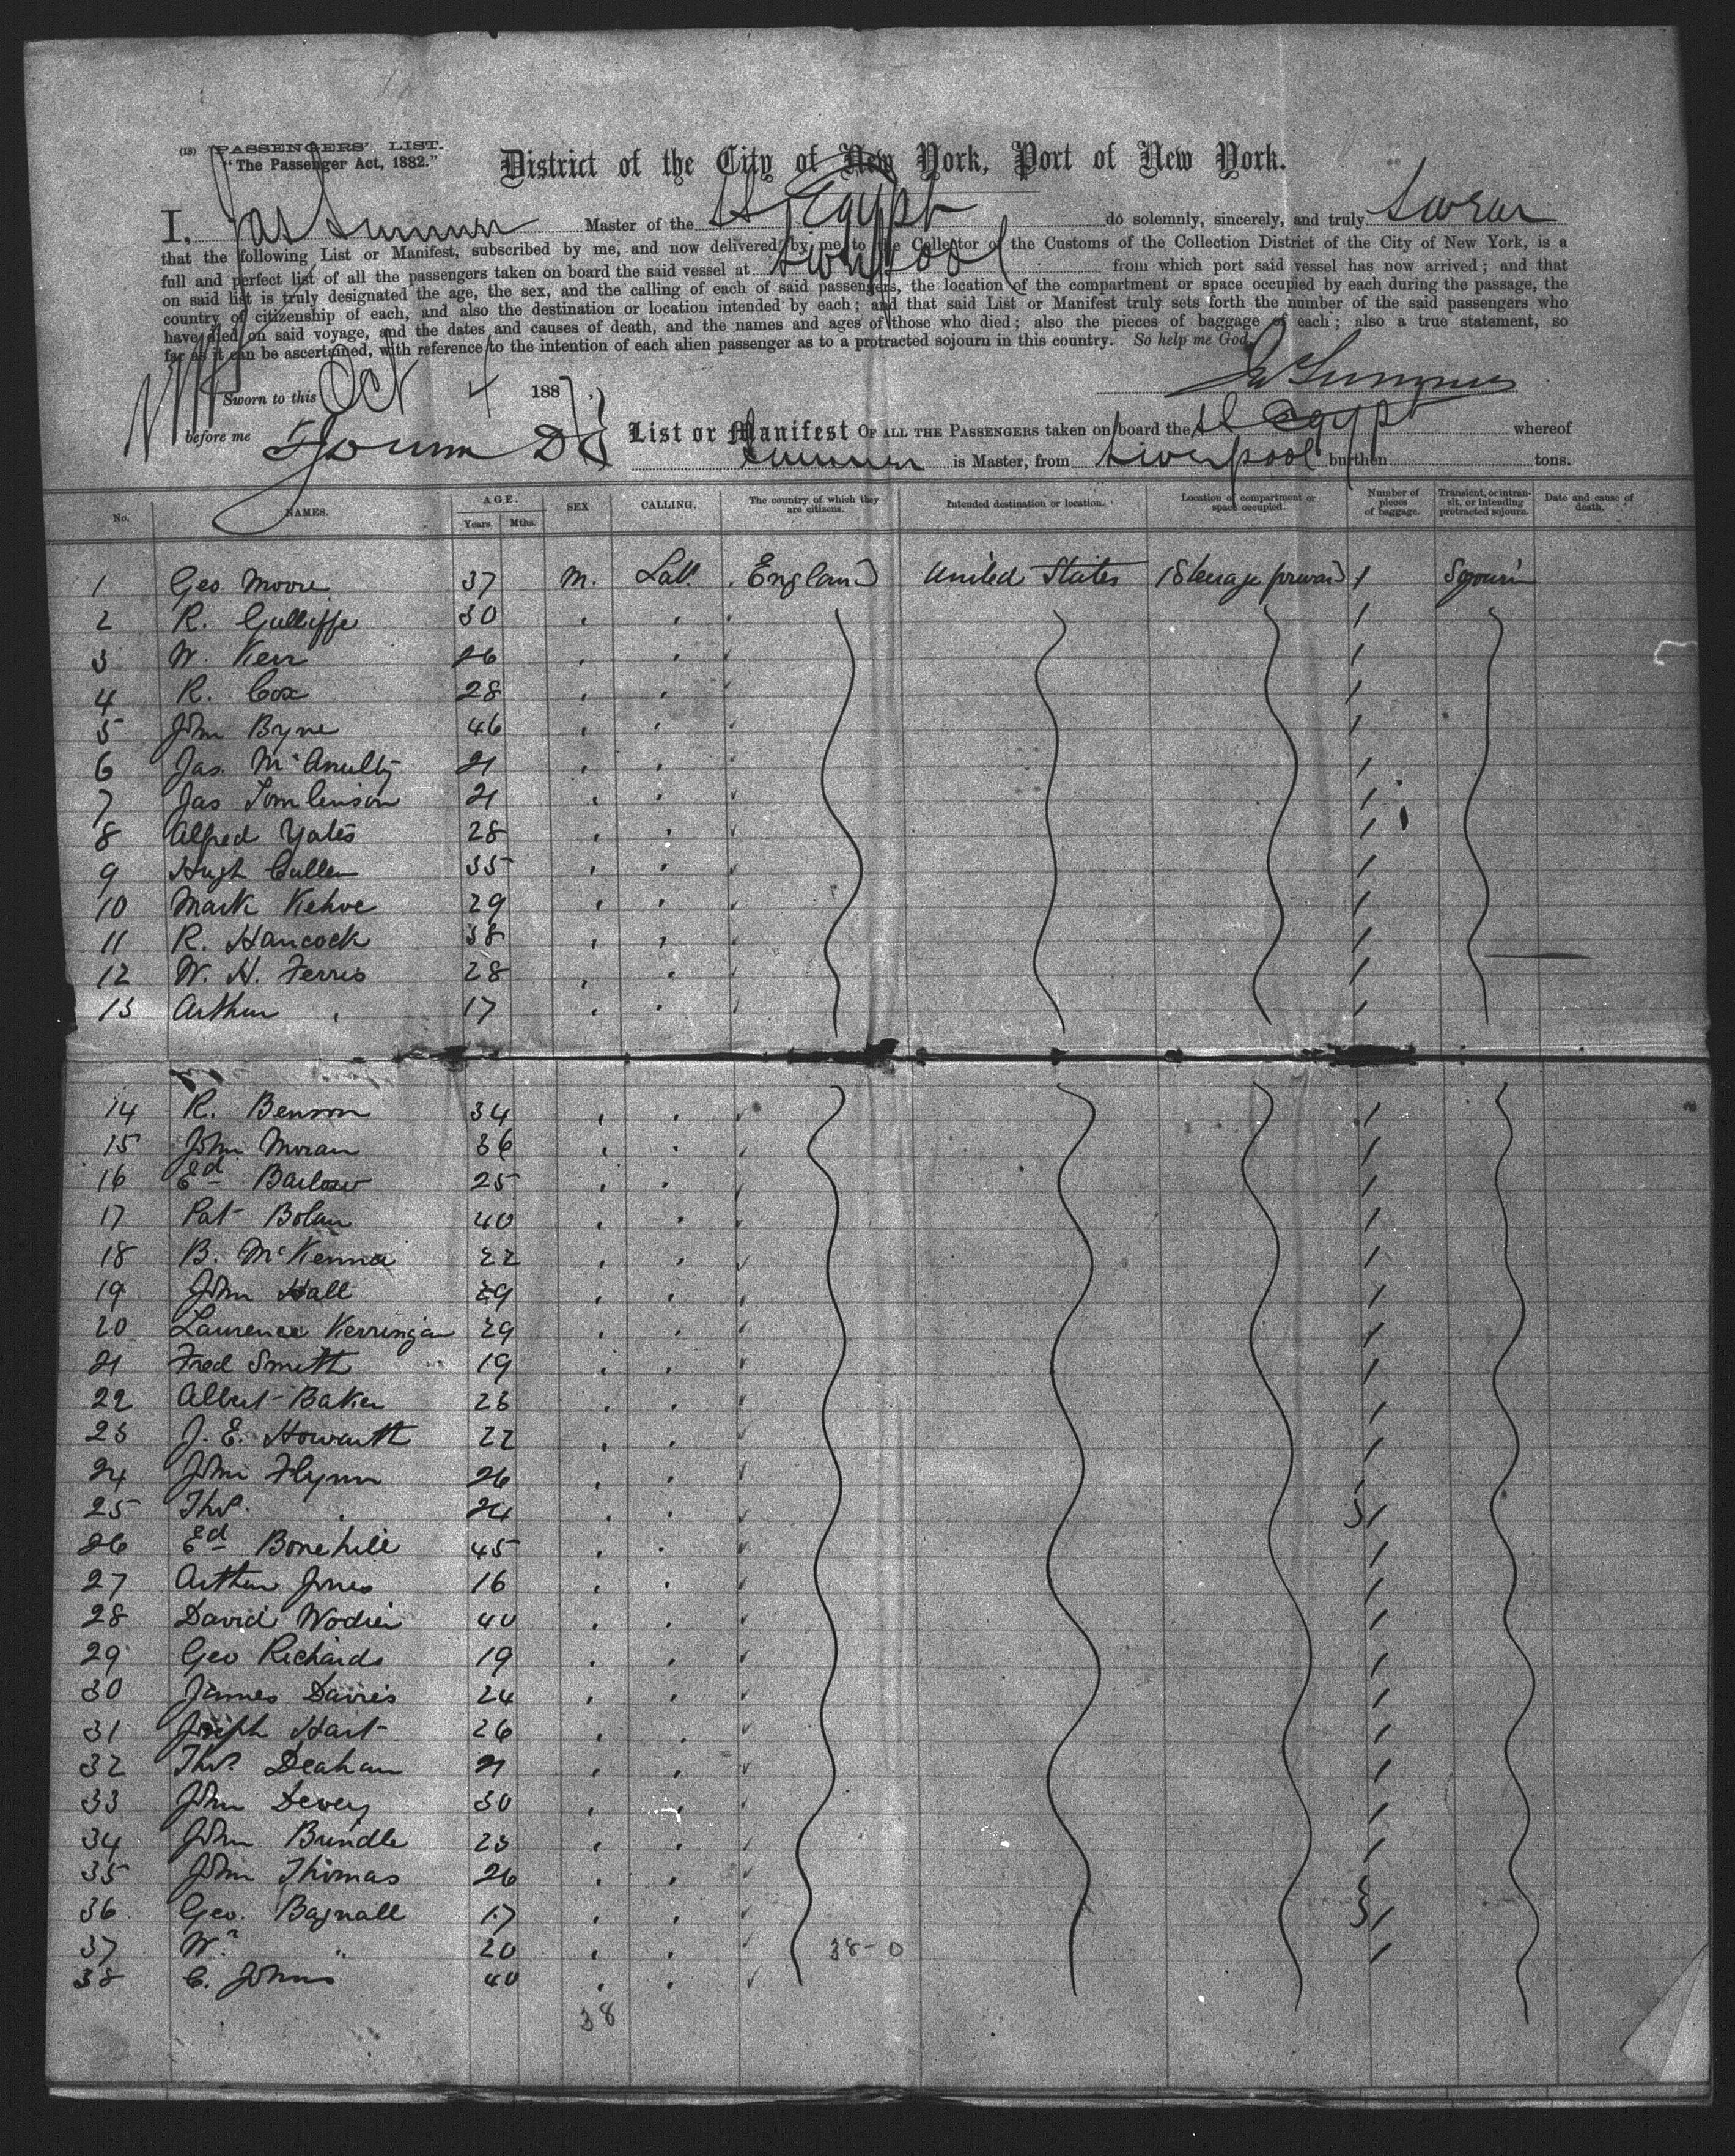 (18) PASSENGERS' LIST.
"The Passenger Act, 1882."
District of the City of New York, Port of New York.
I, Jas Sumner Master of the SS Egypt do solemnly, sincerely, and truly swear
that the following List or Manifest, subscribed by me, and now delivered by me to the Collector of the Customs of the Collection District of the City of New York, is a
full and perfect list of all the passengers taken on board the said vessel at Liverpool from which port said vessel has now arrived; and that
on said list is truly designated the age, the sex, and the calling of each of said passengers, the location of the compartment or space occupied by each during the passage, the
country of citizenship of each, and also the destination or location intended by each; and that said List or Manifest truly sets forth the number of the said passengers who
have died on said voyage, and the dates and causes of death, and the names and ages of those who died; also the pieces of baggage of each; also a true statement, so
far as it can be ascertained, with reference to the intention of each alien passenger as to a protracted sojourn in this country. So help me God.
Sworn to this Oct 4 1887
Jas Sumner
before me
List or Manifest OF ALL THE PASSENGERS taken on board the SS Egypt whereof
Sumner is Master, from Liverpool burthen tons.
No. NAMES. AGE. Years. Mths. SEX CALLING. The country of which they are citizens. Intended destination or location. Location of compartment or space occupied. Number of pieces of baggage. Transient, or intransit, or intending protracted sojourn. Date and cause of death.
1 Geo Moore 37 M. Lab. England United States Steerage forward 1 Sojourn
2 R. Gulliffe 30 1
3 W. Kerr 26 1
4 R. Cox 28 1
5 John Byrne 46 1
6 Jas. McAnulty 21 1
7 Jas Tomlinson 21 1
8 Alfred Yates 28 1
9 Hugh Cullen 35 1
10 Mark Kehoe 29 1
11 R. Hancock 38 1
12 W. H. Ferris 28 1
13 Arthur " 17 1
14 R. Benson 34 1
15 John Moran 36 1
16 Ed Barlow 25 1
17 Pat Bolan 40 1
18 B. McKenna 22 1
19 John Hall 29 1
20 Laurence Kerringan 29 1
21 Fred Smith 19 1
22 Albert Baker 23 1
23 J. E. Howarth 22 1
24 John Flynn 26
25 Thos. " 24 1
26 Ed Bonehill 45 1
27 Arthur Jones 16 1
28 David Wodien 40 1
29 Geo Richards 19 1
30 James Davies 24 1
31 Joseph Hart 26 1
32 Thos. Deahan 21 1
33 John Devey 30 1
34 John Brindle 23 1
35 John Thomas 26
36 Geo. Bagnall 17 1
37 Wm " 20 1 38-0
38 C. Johns 40
38